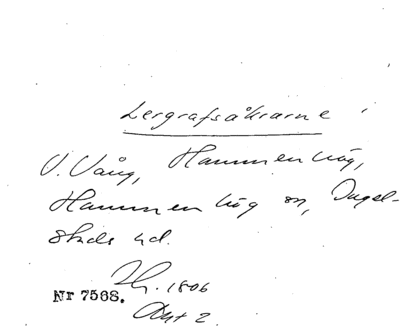 Lergrafsåkrarne
V. Vång, Hammenhög,
Hammenhög sn, Ingel-
stads hd.
1806
Nr 7568.
Akt 2